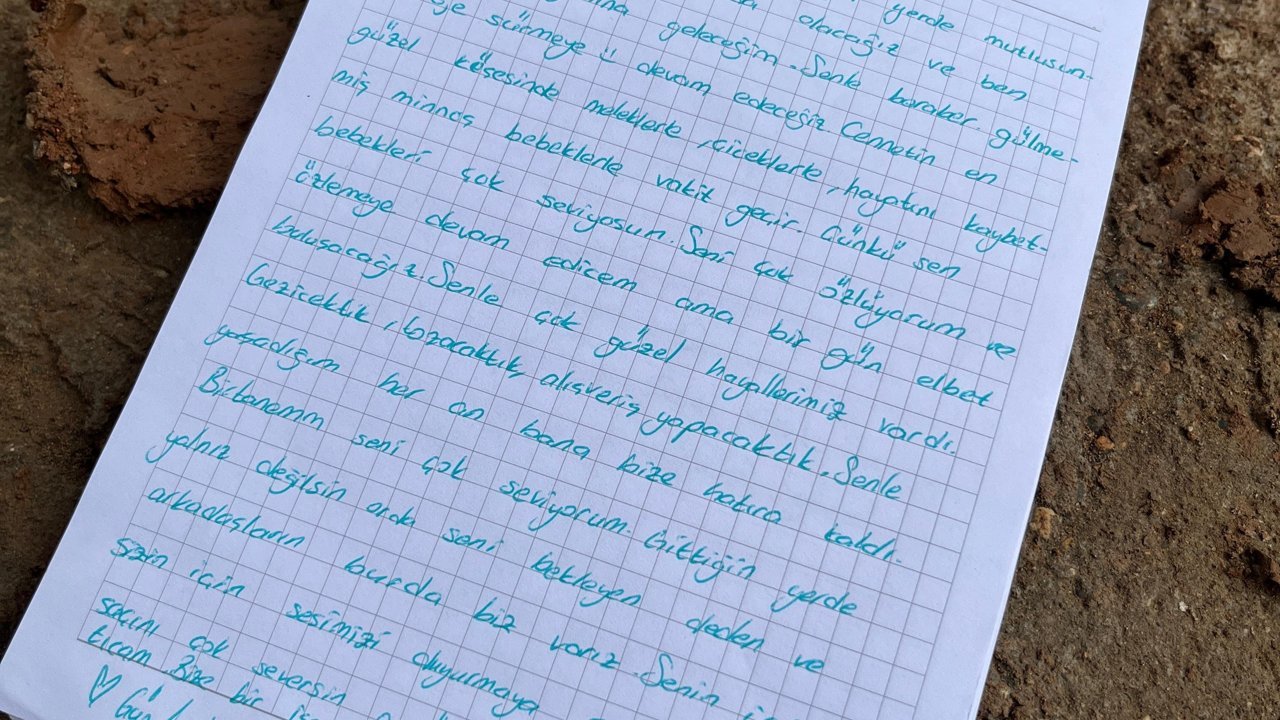 yerde mutlusun.
olacağız ve ben
geleceğim. Senle beraber gülme-
ye sürmeye devam edeceğiz. Cennetin en
güzel köşesinde meleklerle, çiceklerle, hayatını kaybet-
miş minnoş bebeklerle vakit geçir. Çünkü sen
bebekleri çok seviyosun. Seni çok özlüyorum ve
özlemeye devam edicem ama bir gün elbet
bulusacağız. Senle çok güzel hayallerimiz vardı.
Gezicektik, tozacaktık, alışveriş yapacaktık. Senle
yaşadığım her an bana bize hatıra kaldı.
Birtanemm seni çok seviyorum. Gittiğin yerde
yalnız değilsin orda seni bekleyen deden ve
arkadaşların burda biz varız. Senin
sizin için sesimizi duyurmaya
saçını çok seversin
tıcam Bize bir
♡